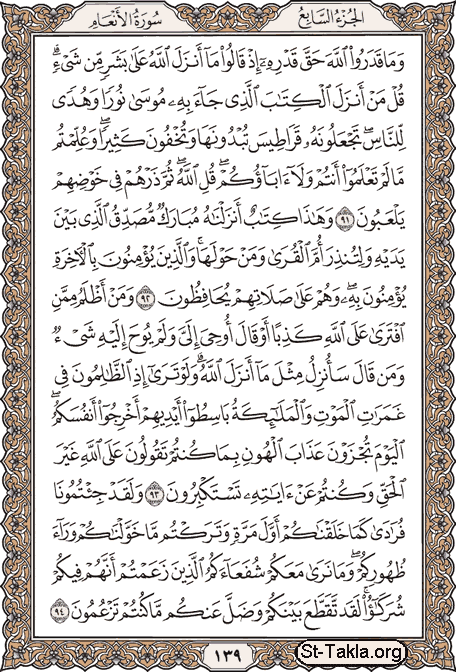 سُورَةُ الأَنْعَامِ
الجُزْءُ السَّابِعُ
وَمَا قَدَرُوا۟ ٱللَّهَ حَقَّ قَدْرِهِۦٓ إِذْ قَالُوا۟ مَآ أَنزَلَ ٱللَّهُ عَلَىٰ بَشَرٍۢ مِّن شَىْءٍۢ ۗ
قُلْ مَنْ أَنزَلَ ٱلْكِتَـٰبَ ٱلَّذِى جَآءَ بِهِۦ مُوسَىٰ نُورًۭا وَهُدًۭى
لِّلنَّاسِ ۖ تَجْعَلُونَهُۥ قَرَاطِيسَ تُبْدُونَهَا وَتُخْفُونَ كَثِيرًۭا ۖ وَعُلِّمْتُم
مَّا لَمْ تَعْلَمُوٓا۟ أَنتُمْ وَلَآ ءَابَآؤُكُمْ ۖ قُلِ ٱللَّهُ ۖ ثُمَّ ذَرْهُمْ فِى خَوْضِهِمْ
يَلْعَبُونَ ٩١ وَهَـٰذَا كِتَـٰبٌ أَنزَلْنَـٰهُ مُبَارَكٌۭ مُّصَدِّقُ ٱلَّذِى بَيْنَ
يَدَيْهِ وَلِتُنذِرَ أُمَّ ٱلْقُرَىٰ وَمَنْ حَوْلَهَا ۚ وَٱلَّذِينَ يُؤْمِنُونَ بِٱلْـَٔاخِرَةِ
يُؤْمِنُونَ بِهِۦ ۖ وَهُمْ عَلَىٰ صَلَاتِهِمْ يُحَافِظُونَ ٩٢ وَمَنْ أَظْلَمُ مِمَّنِ
ٱفْتَرَىٰ عَلَى ٱللَّهِ كَذِبًا أَوْ قَالَ أُوحِىَ إِلَىَّ وَلَمْ يُوحَ إِلَيْهِ شَىْءٌۭ
وَمَن قَالَ سَأُنزِلُ مِثْلَ مَآ أَنزَلَ ٱللَّهُ ۗ وَلَوْ تَرَىٰٓ إِذِ ٱلظَّـٰلِمُونَ فِى
غَمَرَٰتِ ٱلْمَوْتِ وَٱلْمَلَـٰٓئِكَةُ بَاسِطُوٓا۟ أَيْدِيهِمْ أَخْرِجُوٓا۟ أَنفُسَكُمُ ۖ
ٱلْيَوْمَ تُجْزَوْنَ عَذَابَ ٱلْهُونِ بِمَا كُنتُمْ تَقُولُونَ عَلَى ٱللَّهِ غَيْرَ
ٱلْحَقِّ وَكُنتُمْ عَنْ ءَايَـٰتِهِۦ تَسْتَكْبِرُونَ ٩٣ وَلَقَدْ جِئْتُمُونَا
فُرَٰدَىٰ كَمَا خَلَقْنَـٰكُمْ أَوَّلَ مَرَّةٍۢ وَتَرَكْتُم مَّا خَوَّلْنَـٰكُمْ وَرَآءَ
ظُهُورِكُمْ ۖ وَمَا نَرَىٰ مَعَكُمْ شُفَعَآءَكُمُ ٱلَّذِينَ زَعَمْتُمْ أَنَّهُمْ فِيكُمْ
شُرَكَـٰٓؤُا۟ ۚ لَقَد تَّقَطَّعَ بَيْنَكُمْ وَضَلَّ عَنكُم مَّا كُنتُمْ تَزْعُمُونَ ٩٤
١٣٩
St-Takla.org